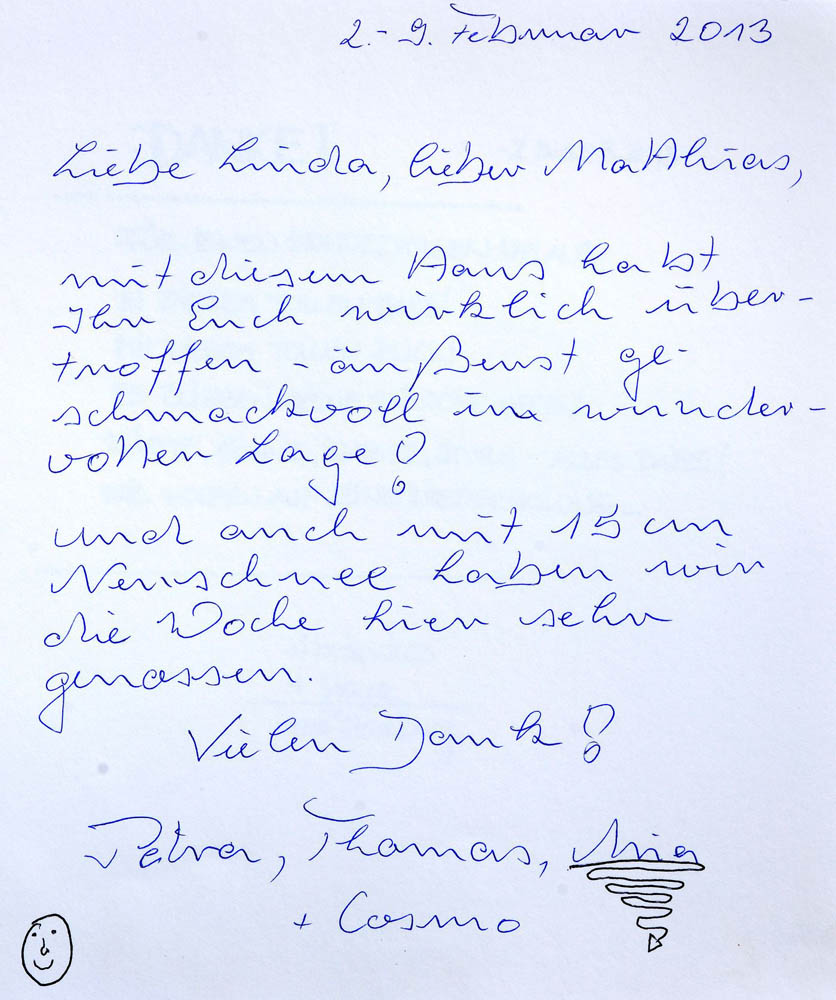 2.-9. Februar 2013
Liebe Linda, lieber Matthias,
mit diesem Haus habt
Ihr Euch wirklich über-
troffen - äußerst ge-
schmackvoll in wunder-
vollen Lage!
und auch mit 15 cm
Neuschnee haben wir
die Woche hier sehr
genossen.
Vielen Dank!
Petra, Thomas, Mia
+ Cosmo